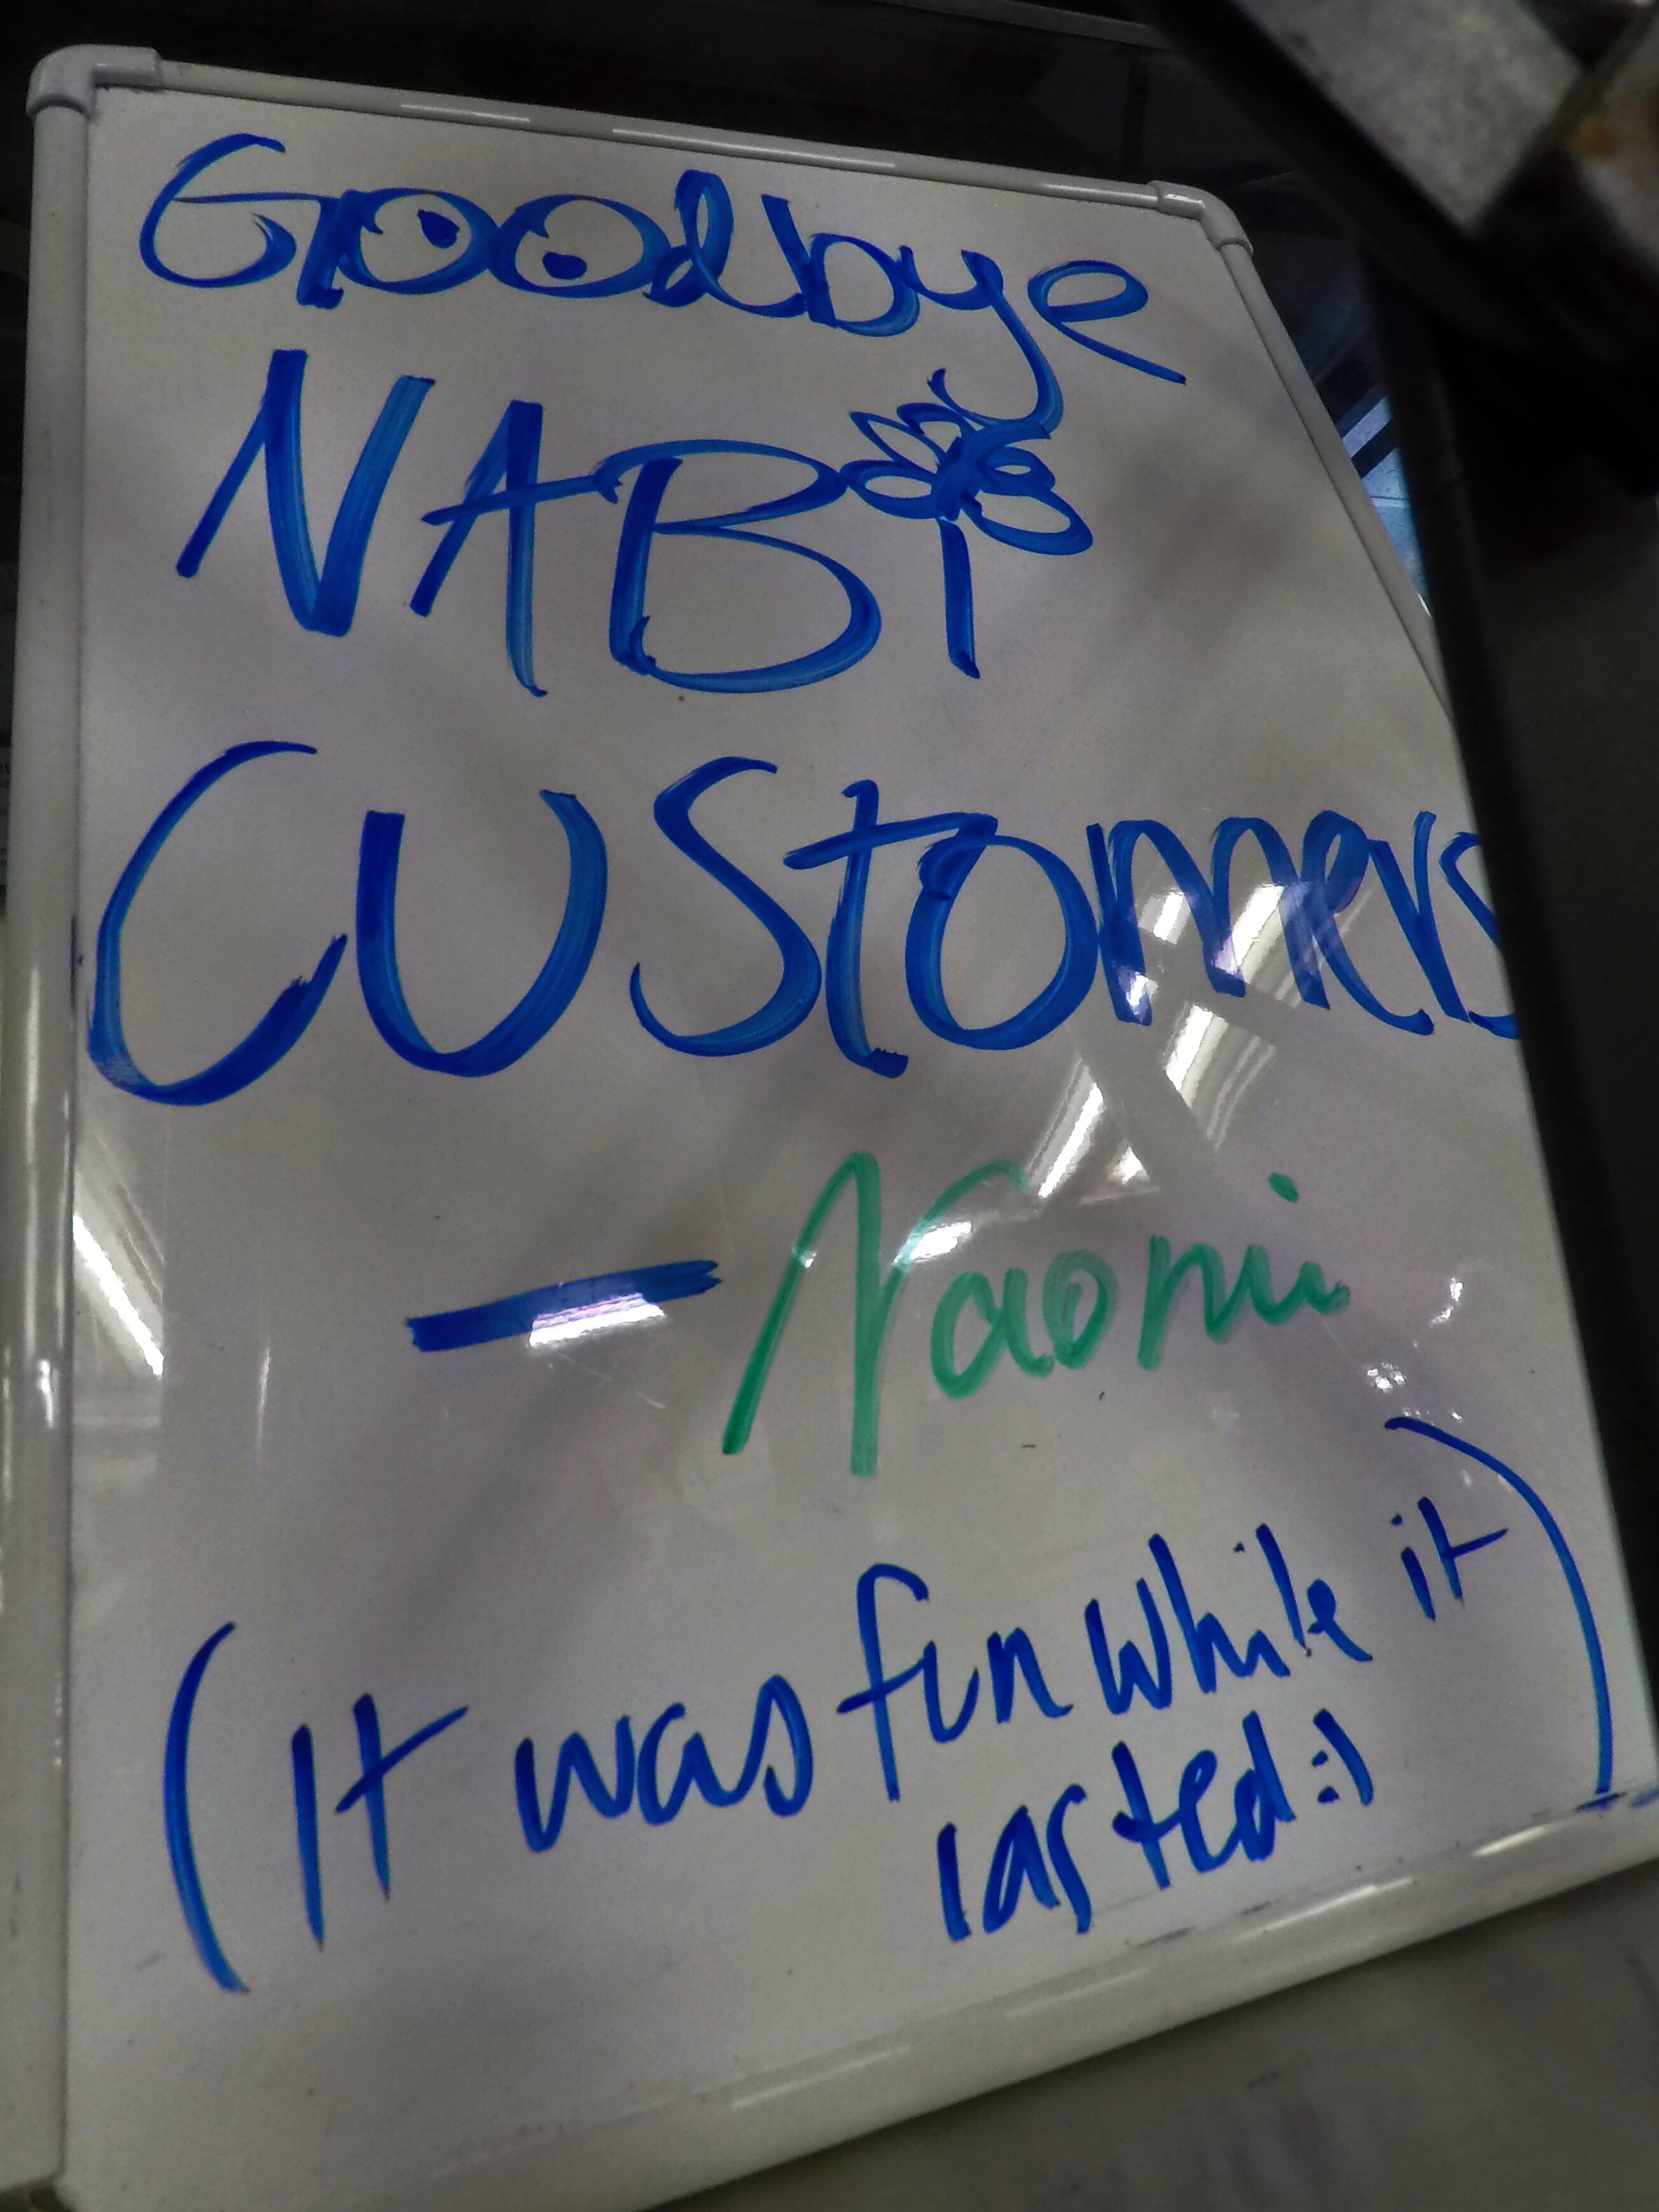 Goodbye
NABi
CUStomers
— Naomi
(It was fun while it
lasted :))